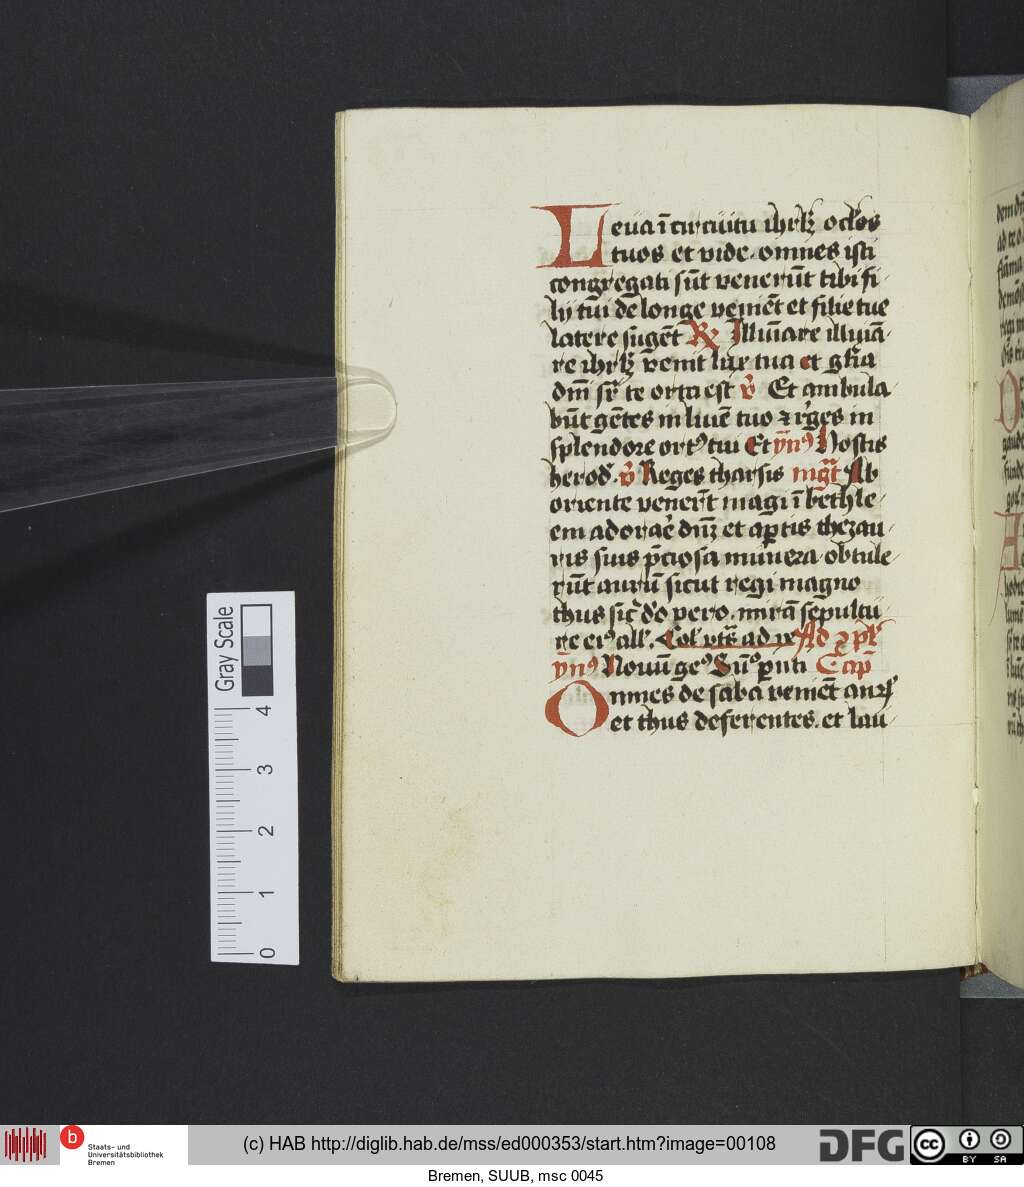 Leua ī circūitu ihrl̄m oc̄los
tuos et vide. omnes isti
congregati sūt venerūt tibi fi
lij tūi de longe veniēt et filie tue
latere sugēt R̷ Illūīare illuīā
re ihrl̄m venit lux tua et gl̄ia
dm̄i suꝑ te orta est v̄ Et ambula
būt gētes in luīe tuo ⁊ rēges in
splendore ort⁹ tui Et ym̄n⁹ Hostis
herod̄. v̄ Reges tharsis mgt̄ Ab
oriente venerūt magi ī bethle
em adorar̄e dn̄m et aꝑtis thezau
ris suis p̄ciosa munera obtule
rūt aurū sicut regi magno
thus sic̄ deo vero. mirā sepultu
re ei⁹ all̄. Col̄ vts̄ ad ve Ad 2 vꝑ
ym̄n⁹ Nouū ge⁹ Sūs̄ puti Cap̄
Omnes de saba veniēt aur̄
et thus deferentes. et lau
dem
ad te
Gray Scale
4
3
2
1
0
b
Staats- und
Universitätsbibliothek
Bremen
(c) HAB http://diglib.hab.de/mss/ed000353/start.htm?image=00108
DFG
cc
BY SA
Bremen, SUUB, msc 0045